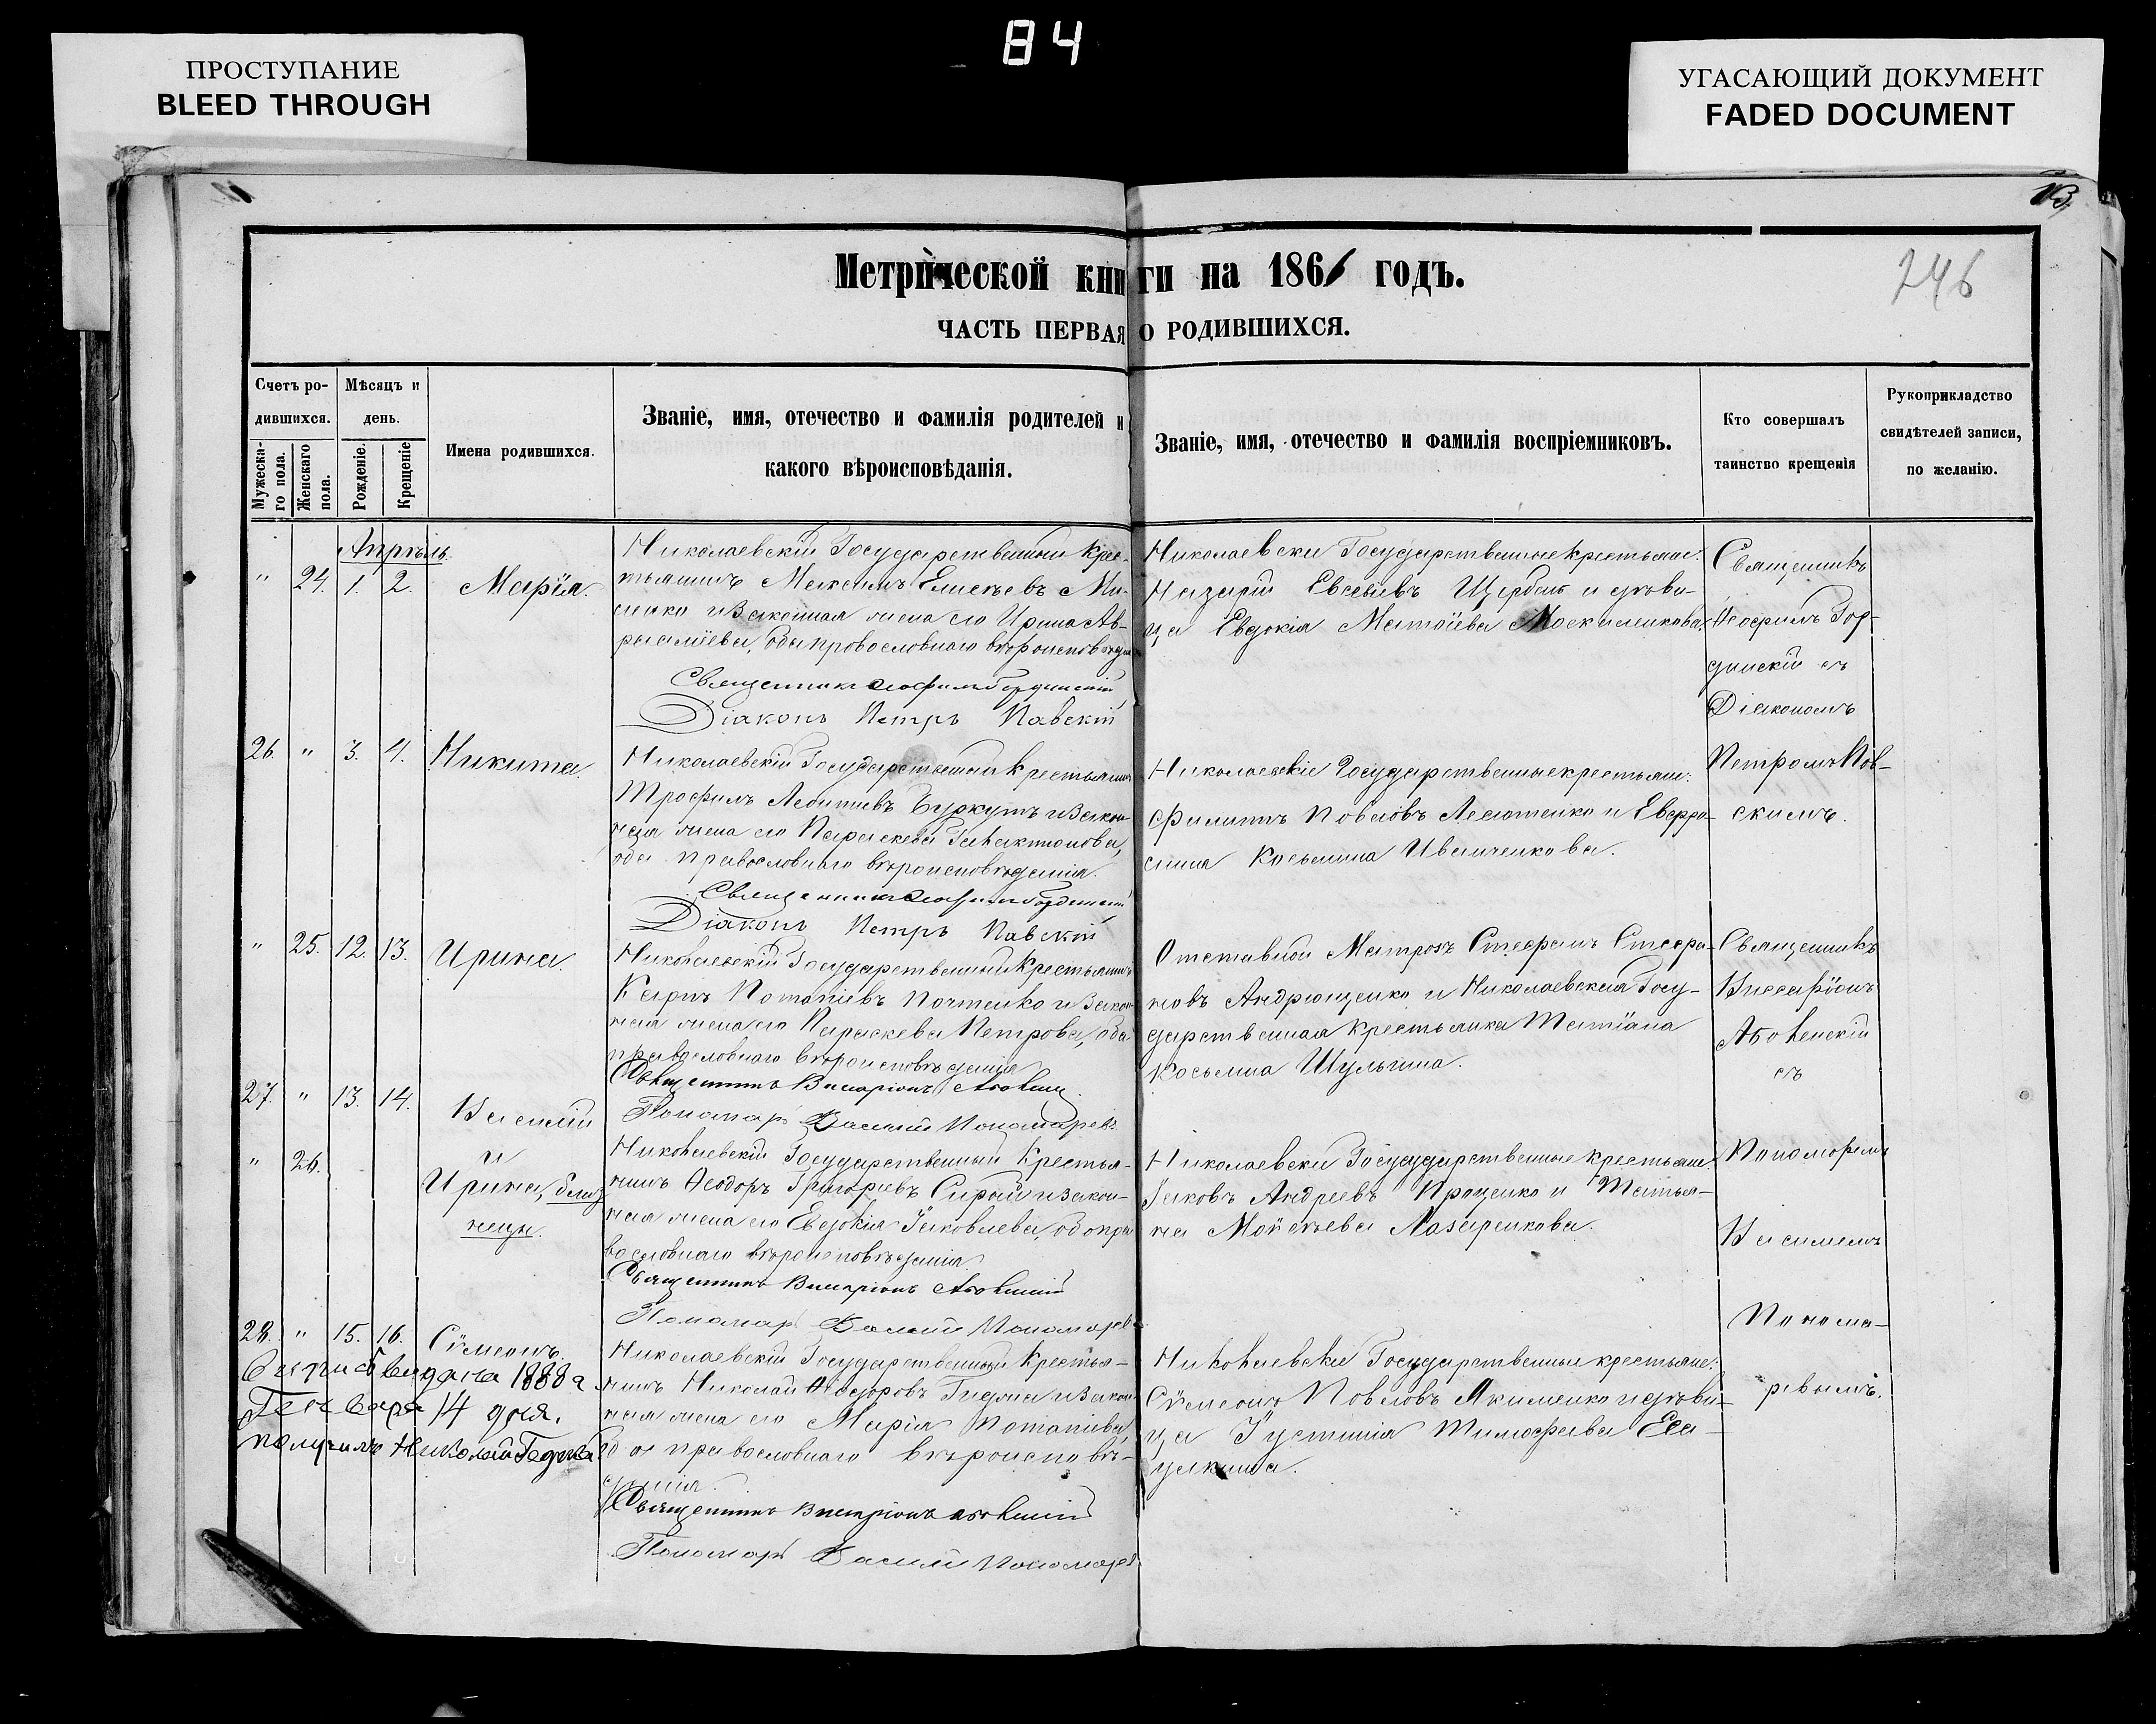 84
ПРОСТУПАНИЕ
BLEED THROUGH
УГАСАЮЩИЙ ДОКУМЕНТ
FADED DOCUMENT
246
Метрической книги на 1866 годъ.
ЧАСТЬ ПЕРВАЯ О РОДИВШИХСЯ.
Счетъ ро-
дившихся.
Мужеска-
го пола.
Женскаго
пола.
Мѣсяцъ и
день.
Рожденіе.
Крещеніе
Имена родившихся.
Званіе, имя, отечество и фамилія родителей и
какого вѣроисповѣданія.
Званіе, имя, отечество и фамилія воспріемниковъ.
Кто совершалъ
таинство крещенія
Рукоприкладство
свидѣтелей записи,
по желанію.
Апрѣль.
" 24. 1. 2. Марія.
Николаевскій Государственный крес-
тьянинъ Максимъ Елисѣевъ
и законная жена его Ирина Ав-
православнаго
Священникъ
Діаконъ Петръ Павскій
Николаевскіе Государственные крестьяне:
Назарій Евсевіевъ Щербакъ и дѣви-
ца Евдокія Матѳіева
Священникъ
Ѳеофилъ Гор-
динскій съ
Діакономъ
Петромъ Пав-
скимъ.
26. " 3. 4. Никита.
Николаевскій Государственный крестьянинъ
Трофимъ Леонтіевъ Буркутъ и закон-
ная жена его Параскева Галактіонова,
оба православнаго вѣроисповѣданія.
Священникъ
Діаконъ Петръ Павскій
Николаевскіе Государственные крестьяне:
Филиппъ Павловъ и Евфро-
сина Косьмина Иванченкова.
" 25. 12. 13. Ирина.
Николаевскій Государственный крестьянинъ
Карпъ Потапіевъ и закон-
ная жена его Параскева Петрова, оба
православнаго вѣроисповѣданія
Священникъ Виссаріонъ
Пономарь Василій Пономаревъ
Отставной Матрозъ Стефанъ Стефа-
новъ Андрющенко и Николаевская Госу-
дарственная крестьянка Татіана
Косьмина Шульгина.
Священникъ
Виссаріонъ
съ
Пономаремъ
Василіемъ
Понома-
ревымъ.
27. " 13. 14. Василій
" 26. и
Ирина, близ-
нецы.
Николаевскій Государственный крестья-
нинъ Ѳеодоръ Григорьевъ Сирый и закон-
ная жена его Евдокія Іаковлева, оба пра-
вославнаго вѣроисповѣданія.
Священникъ Виссаріонъ
Пономарь Василій Пономаревъ
Николаевскіе Государственные крестьяне:
Іаковъ Андреевъ Проценко и Татья-
на Моисѣева Лазаренкова.
28. " 15. 16. Сѵмеонъ.
выдана 1888 г
Генваря 14 дня.
получилъ Николай
Николаевскій Государственный крестья-
нинъ Николай Ѳеодоровъ и закон-
ная жена его Марія Потапіева,
оба православнаго вѣроисповѣ-
данія.
Священникъ Виссаріонъ
Пономарь Василій Пономаревъ
Николаевскіе Государственные крестьяне:
Сѵмеонъ Павловъ Якименко и дѣви-
ца Іустинія Тимофеева